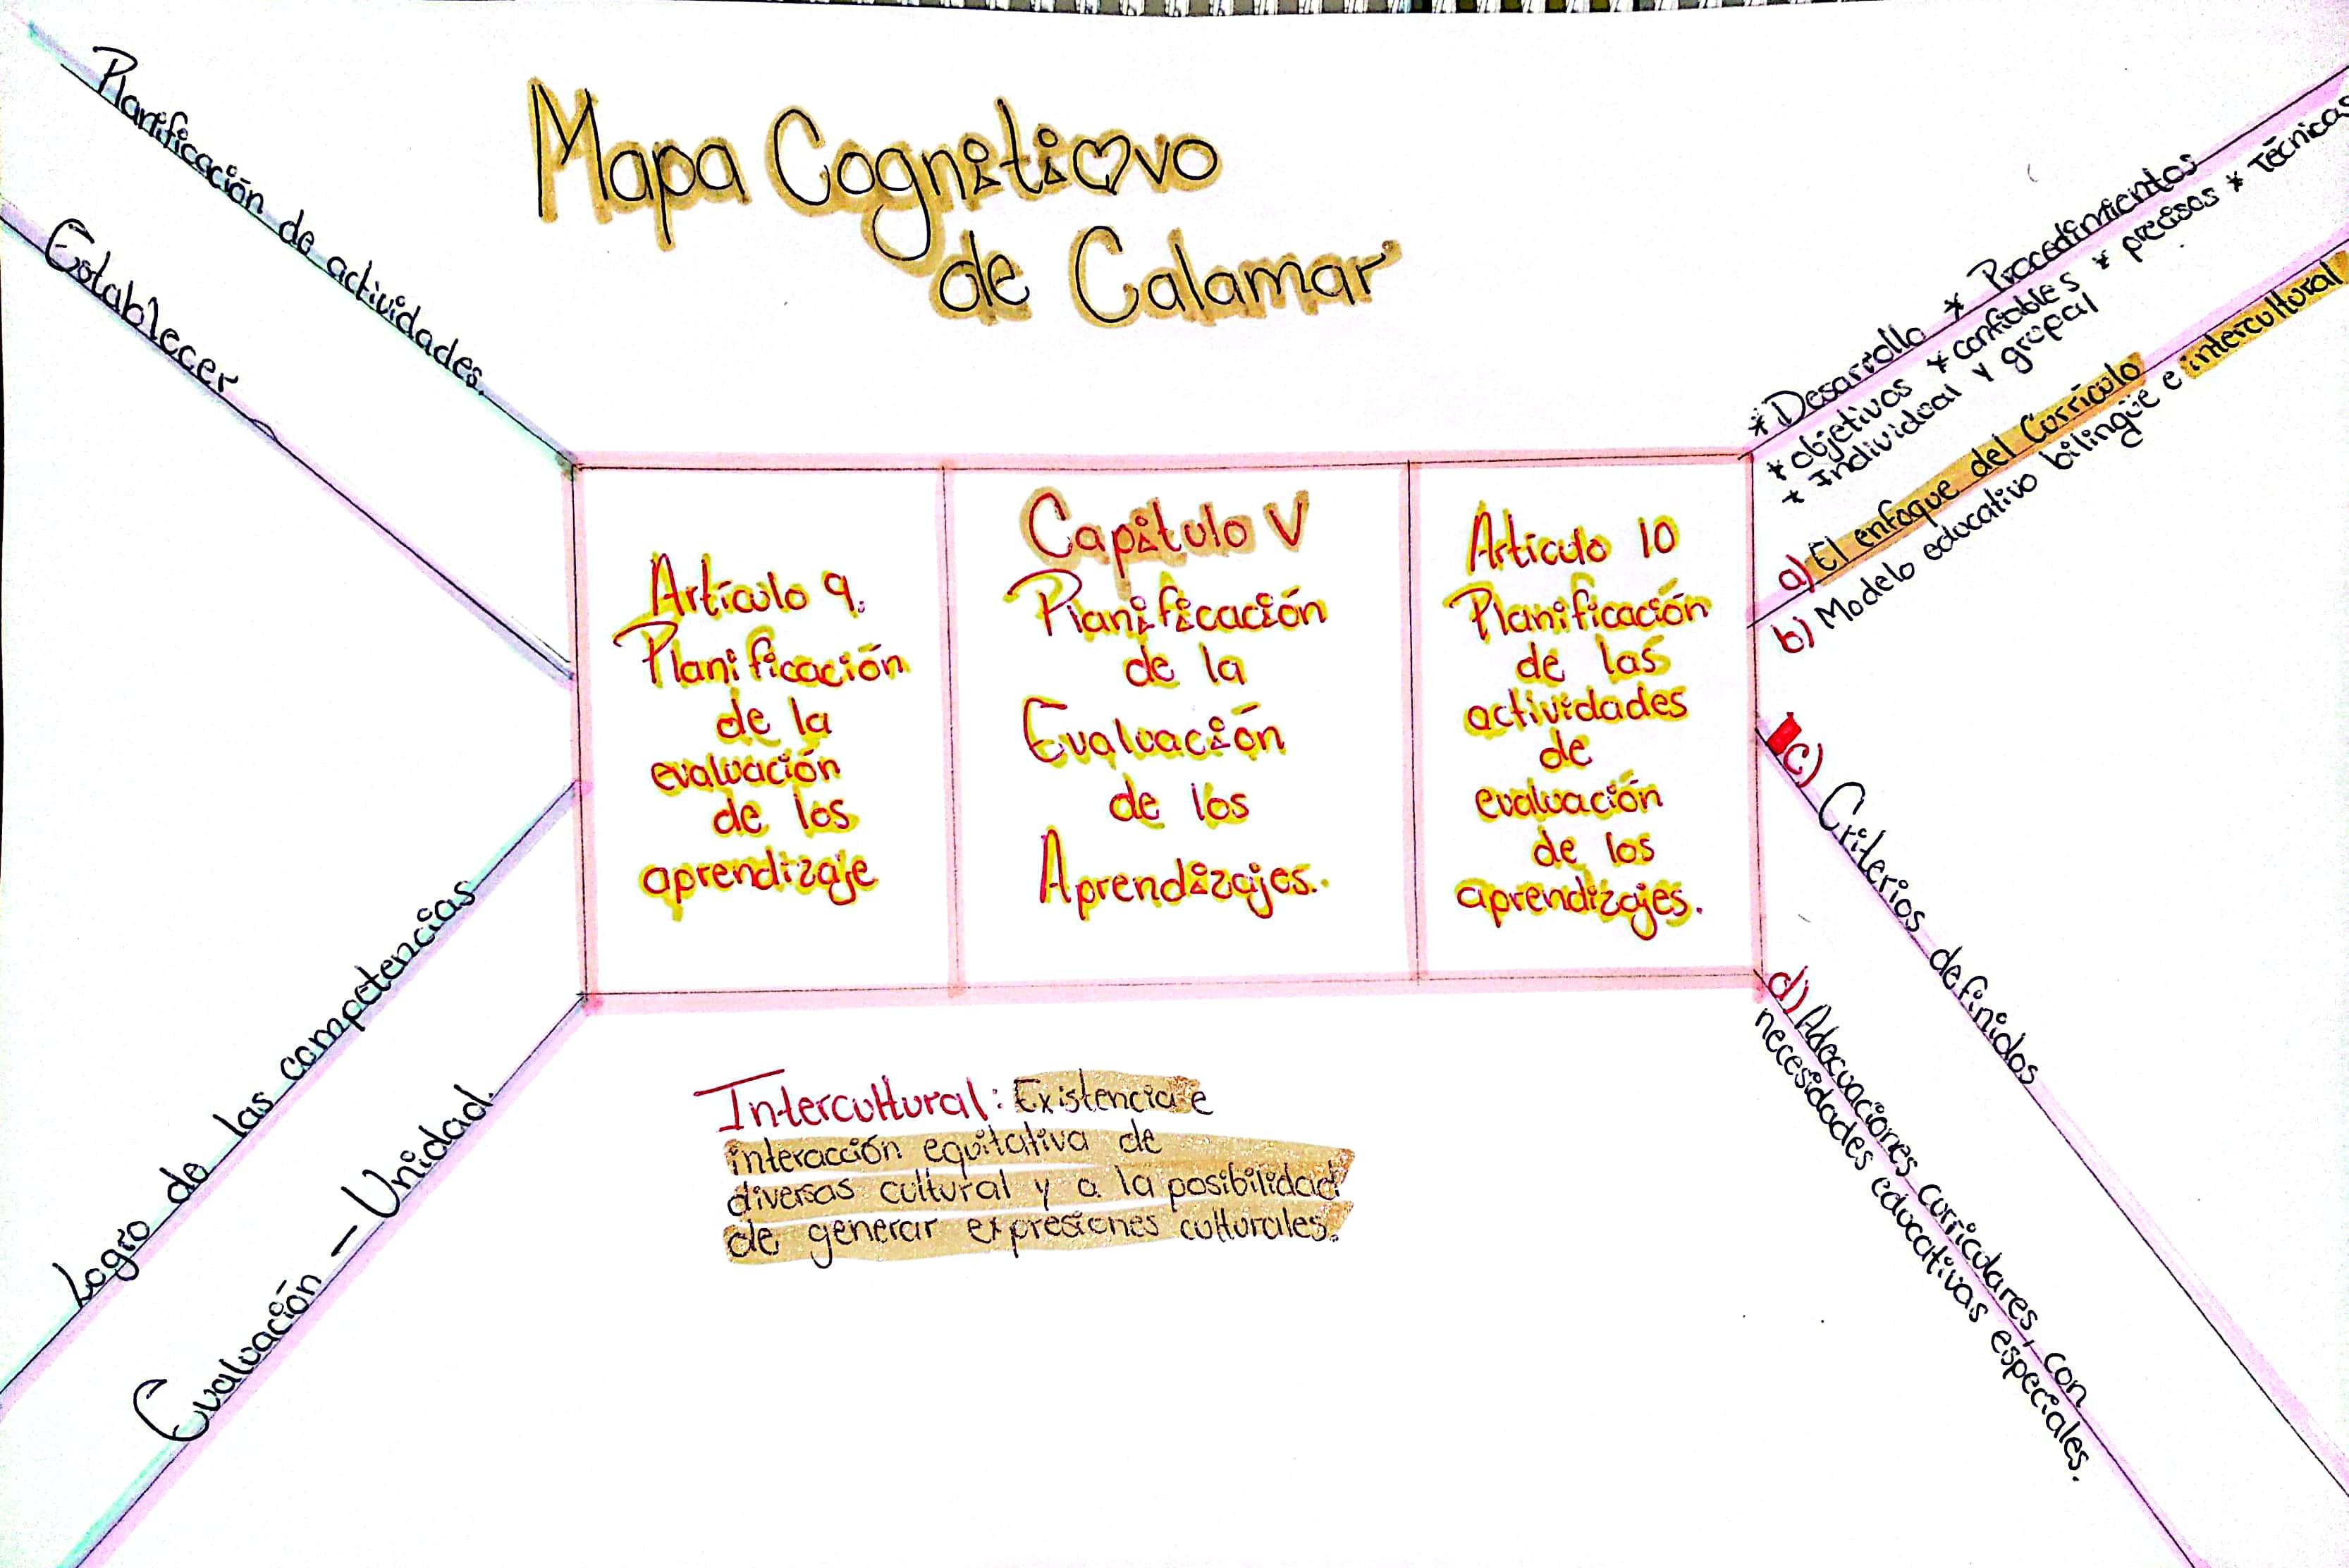 Mapa Cognitivo
de Calamar
Planificación de actividades.
Establecer
Logro de las competencias
Evaluación - Unidad.
Artículo 9.
Planificación
de la
evaluación
de los
aprendizaje
Capitulo V
Planificación
de la
Evaluación
de los
Aprendizajes.
Artículo 10
Planificación
de las
actividades
de
evaluación
de los
aprendizajes.
* Desarrollo * Procedimientos
* objetivos * confiables * precisos * Técnicas
* Individual y grupal
a) El enfoque del Currículo
b) Modelo educativo bilingüe e intercultural
c) Criterios definidos
d) Adecuaciones curriculares, con
necesidades educativas especiales.
Intercultural: Existencia e
interacción equitativa de
diversas cultural y a la posibilidad
de generar expresiones culturales.